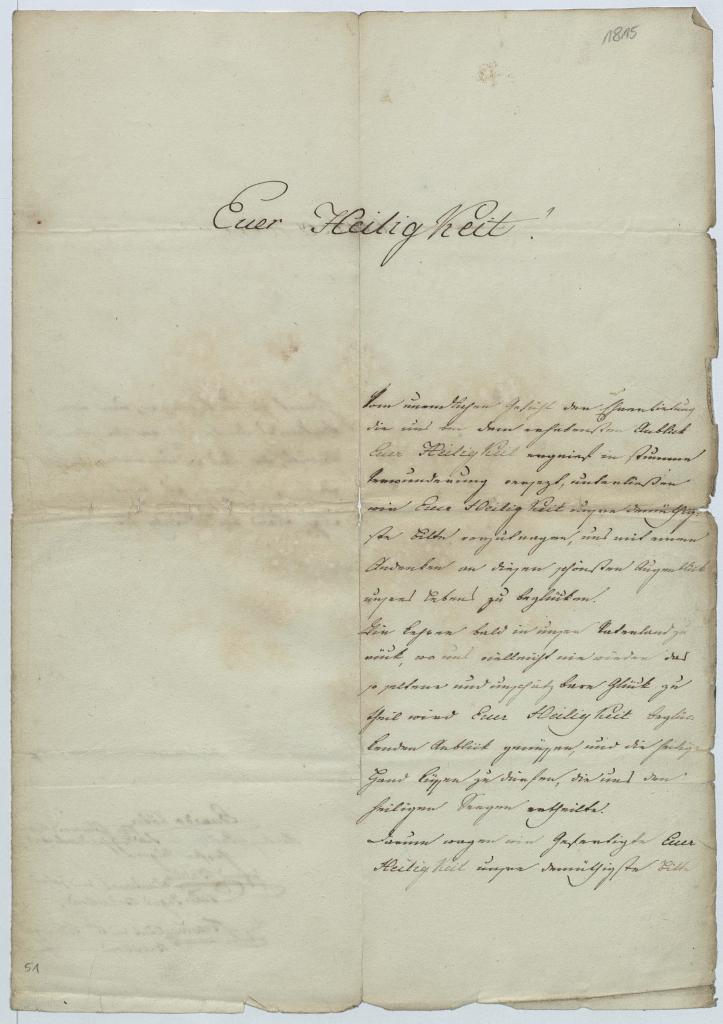 1815
Euer Heiligkeit!
Vom unendlichen Gefühl der Ehrerbietung
die uns bei dem erhabensten Anblick
Euer Heiligkeit ergriff in stumme
Verwunderung versezt, unterließen
wir Euer Heiligkeit unsre demüthig-
ste Bitte vorzutragen, uns mit einem
Andenken an diesen schönsten Augenblick
unsers Lebens zu beglücken.
Wir kehren bald in unser Vaterland zu
rück, wo uns vielleicht nie wieder das
so seltene und unschätzbare Glück zu
theil wird Euer Heiligkeit beglü-
kenden Anblick genießen, und die heilige
Hand küssen zu dürfen, die uns den
heiligen Seegen ertheilte.
Darum wagen wir Gefertigte Euer
Heiligkeit unsre demüthigste Bitte
51